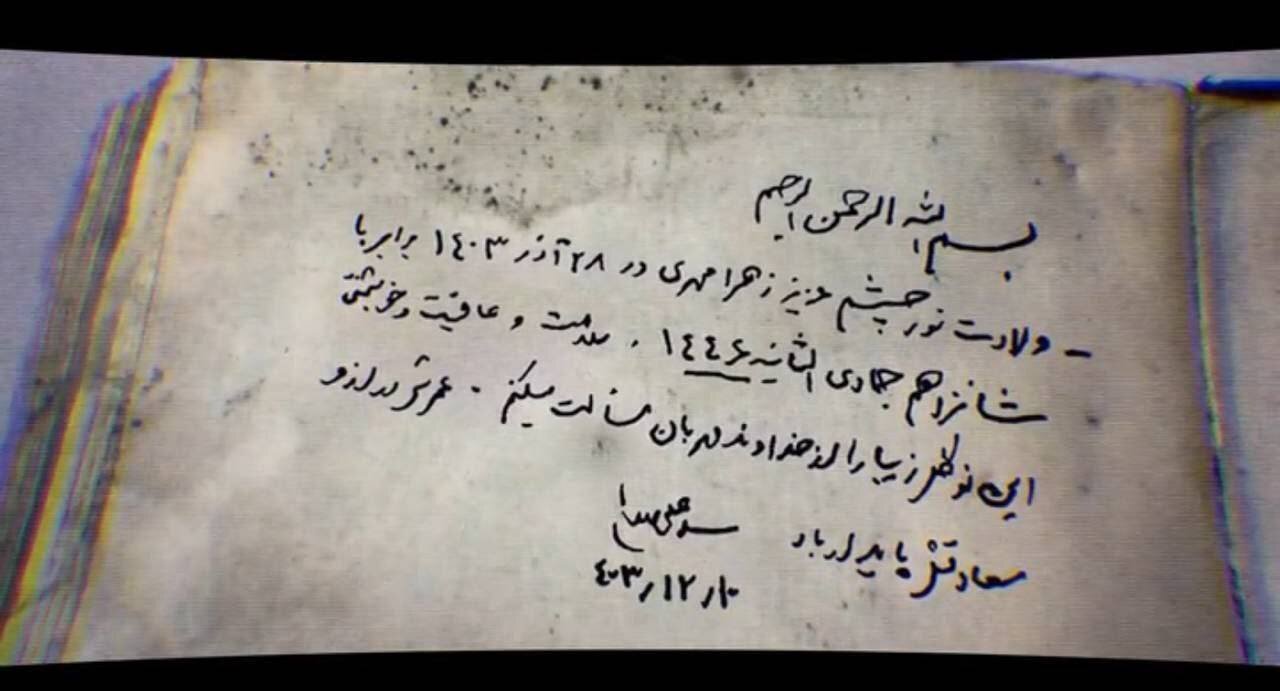 بسم الله الرحمن الرحیم
- ولادت نور چشم عزیز زهرا مهدی در ۲۸ آذر ۱۴۰۳ برابر با
شانزدهم جمادی الثانیه ۱۴۴۶ . سلامت و عافیت و خوشبختی
این نوگل زیبا را از خداوند مهربان مسألت میکنم - عمرش دراز و
سعادتش پایدار باد
۱۰ ر ۱۲ ر ۴۰۳